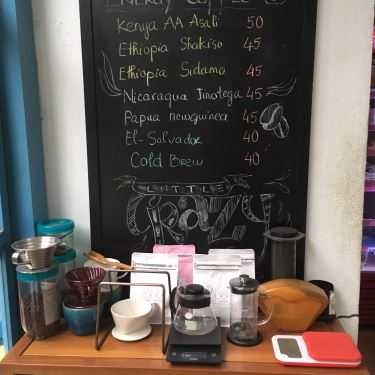 Nerdy Coffee
Kenya AA Asali 50
Ethiopia Shakiso 45
Ethiopia Sidama 45
Nicaragua Jinotega 45
Papua newguinea 45
El-Salvador 40
Cold Brew 40
LITTLE
CRAZY